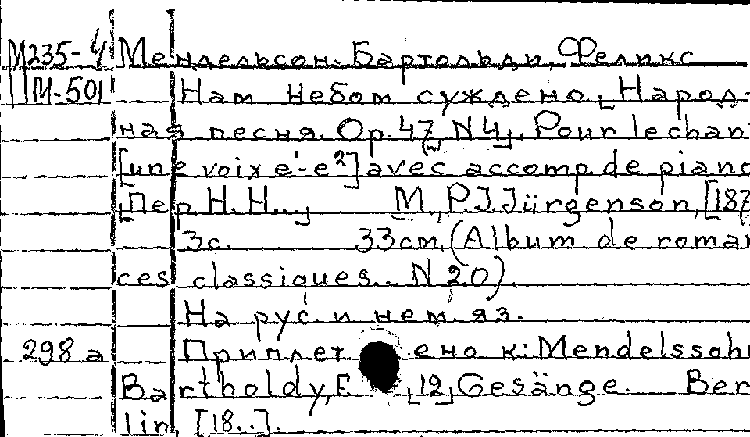 М235-4 Мендельсон-Бартольди, Феликс
М-501 Нам небом суждено. Народ-
ная песня. Ор. 47, N 4. Pour le chan
[une voix e'-e²] avec accomp. de piano
Пер. Н. Н. М., P. J. Jürgenson, [187
3 с. 33 cm. (Album de roman
ces classiques. N 20).
На рус. и нем. яз.
298а Приплет ено к: Mendelssohn
Bartholdy, F 12, Gesänge. Ber
lin, [18..].